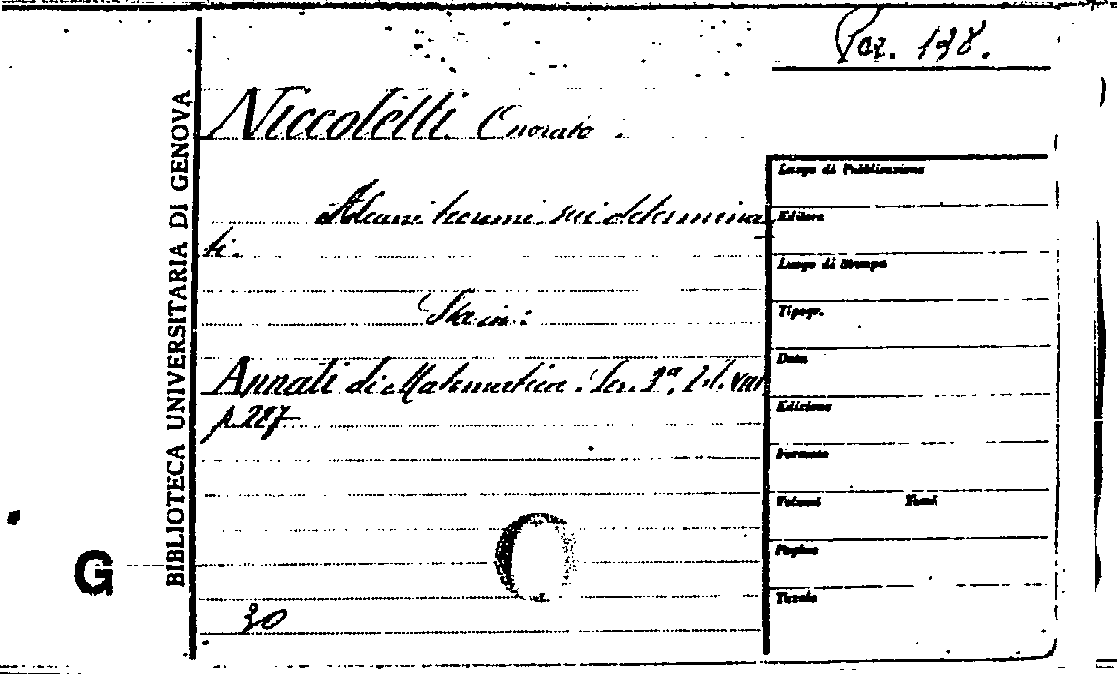 Per. 138.
BIBLIOTECA UNIVERSITARIA DI GENOVA
Niccoletti Onorato.
Alcuni teoremi sui determinan
ti.
Sta in:
Annali di Matematica. Ser. 3ª, T. VIII
p. 287
30
G
Luogo di Pubblicazione
Editore
Luogo di Stampa
Tipogr.
Data
Edizione
Formato
Volumi Tomi
Pagine
Tavole